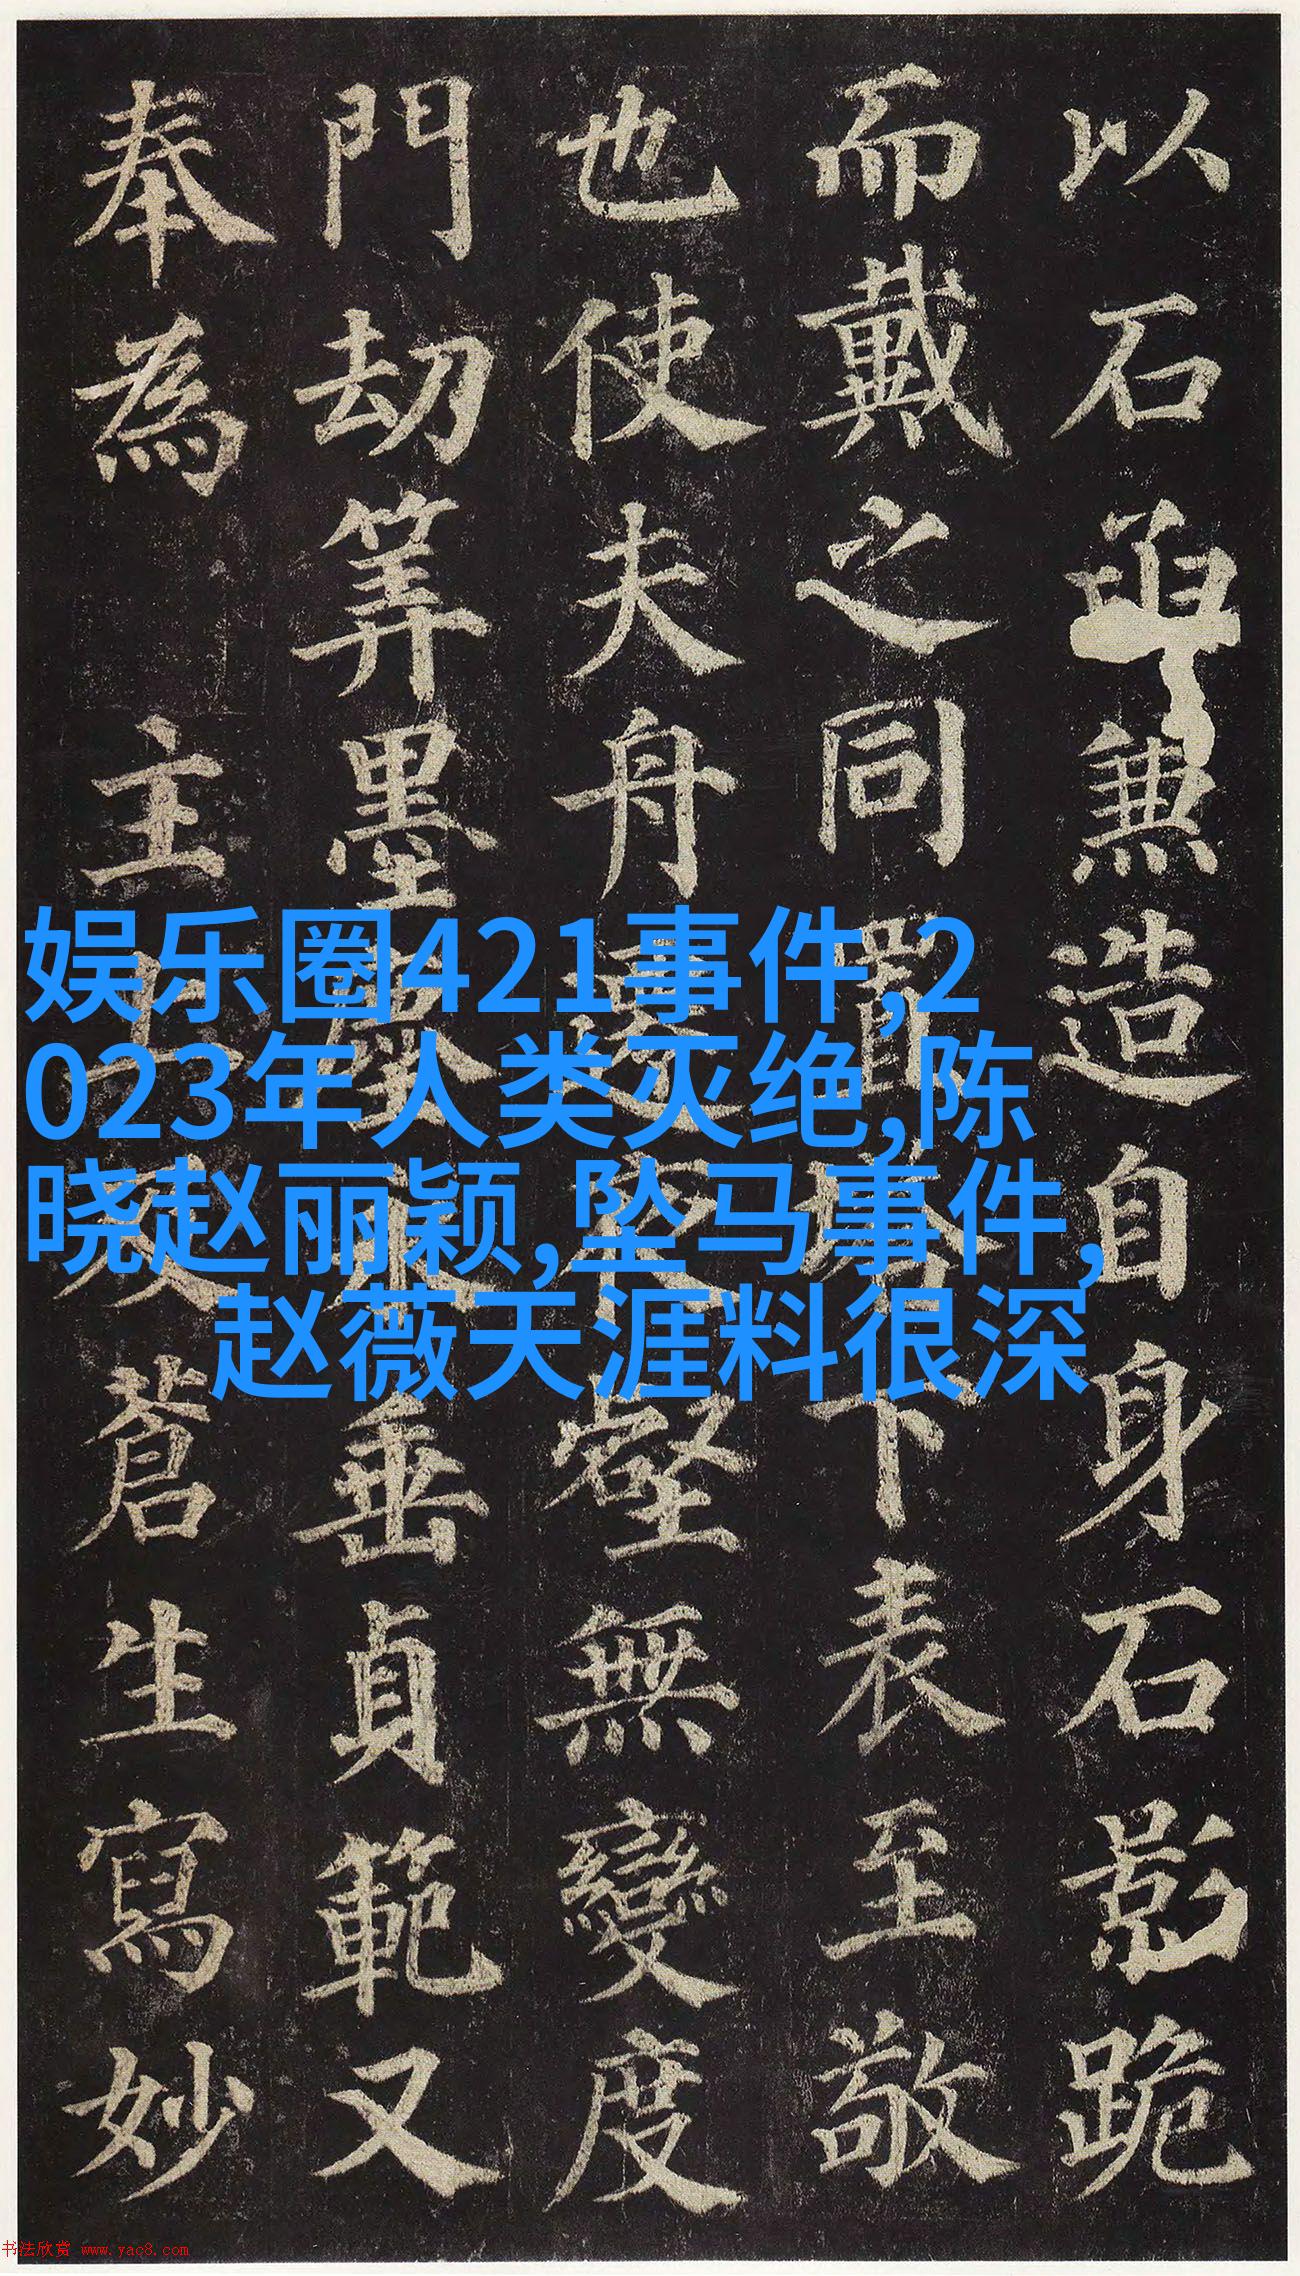 以石函兼造自身石影跪
而戴之同置塔下表至敬
也使夫舟遷夜壑無變度
門劫筭墨塵永垂貞範又
奉為主上及蒼生寫妙
娱乐圈421事件,2
023年人类灭绝,陈
晓赵丽颖,坠马事件,
赵薇天涯料很深
书法欣赏 www.yac8.com